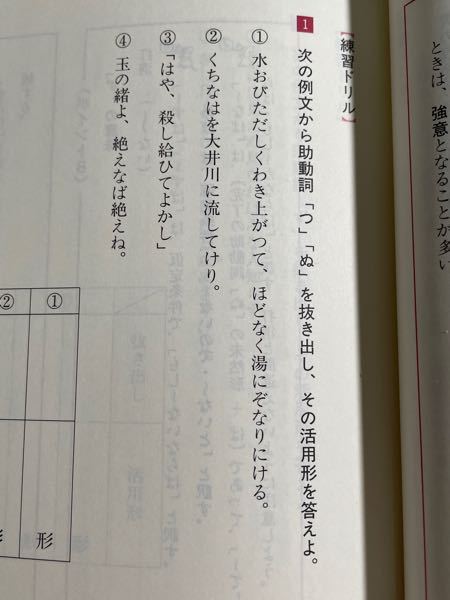 ときは、強意となることが多い
【練習ドリル】
1 次の例文から助動詞「つ」「ぬ」を抜き出し、その活用形を答えよ。
① 水おびただしくわき上がつて、ほどなく湯にぞなりにける。
② くちなはを大井川に流してけり。
③ 「はや、殺し給ひてよかし」
④ 玉の緒よ、絶えなば絶えね。
①
形
②